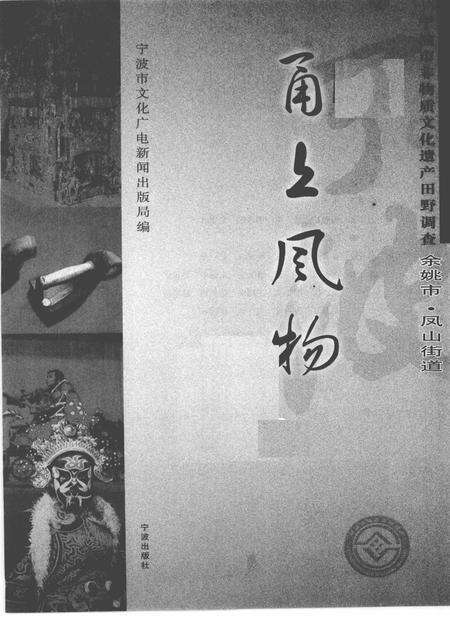 物质文化遗产田野调查
余姚市·凤山街道
甬上风物
宁波市文化广电新闻出版局编
宁波出版社